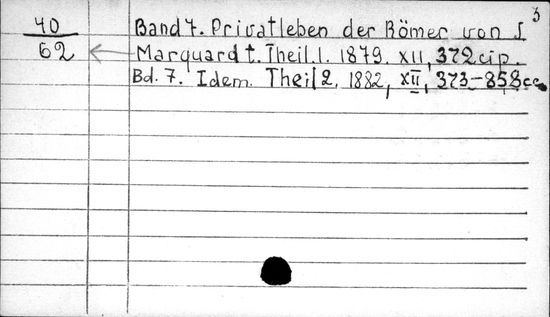 3
40 Band 7. Privatleben der Römer von I
62 Marquardt. Theil. 1. 1879. XII, 372 с̧ір.
Bd. 7. Idem. Theil 2. 1882, XII, 373–858 сс.